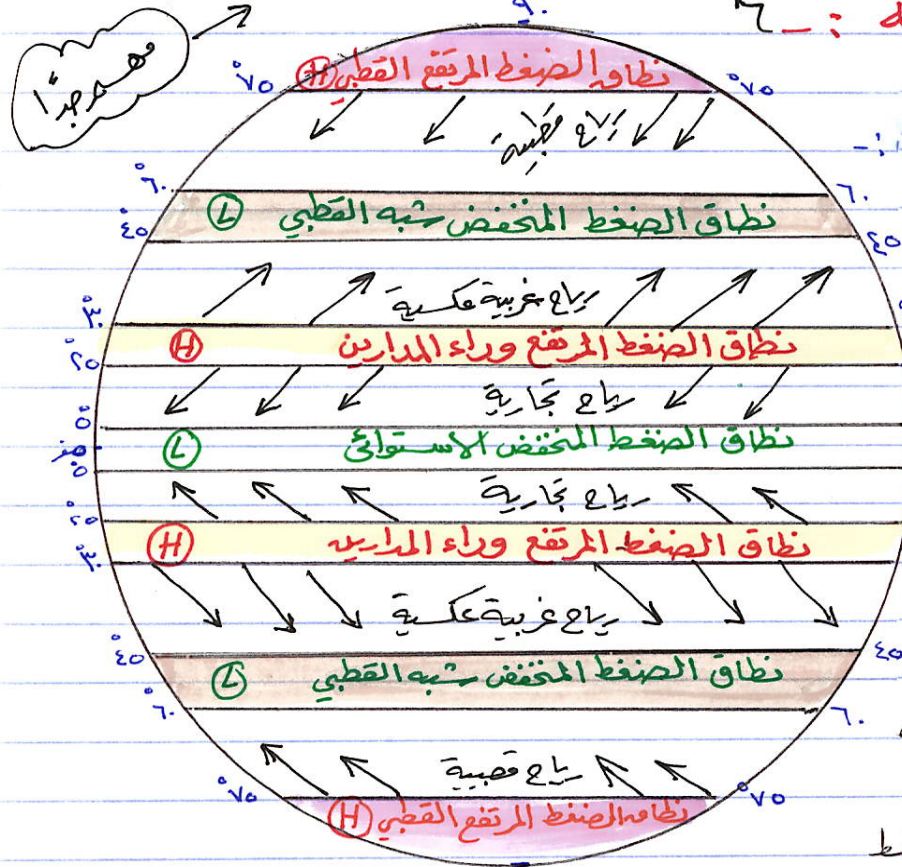 ٩٠
مهم جدًا
°٧٥ نطاق الضغط المرتفع القطبي (H) °٧٥
رياح قطبية
°٦٠ ٦٠
نطاق الضغط المنخفض شبه القطبي (L)
°٤٥ ٤٥
رياح غربية عكسية
°٣٠
نطاق الضغط المرتفع وراء المدارين (H)
°٢٥
رياح تجارية
°٥
نطاق الضغط المنخفض الاستوائي (L)
°٥
رياح تجارية
°٢٥
نطاق الضغط المرتفع وراء المدارين (H)
°٣٠
رياح غربية عكسية
°٤٥ ٤٥
نطاق الضغط المنخفض شبه القطبي (L)
°٦٠ ٦٠
رياح قطبية
°٧٥ °٧٥
نطاق الضغط المرتفع القطبي (H)